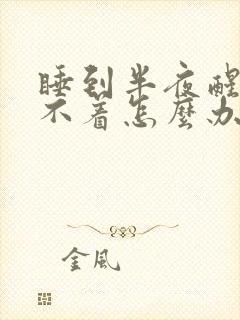 睡到半夜醒
不着怎麼办
金風